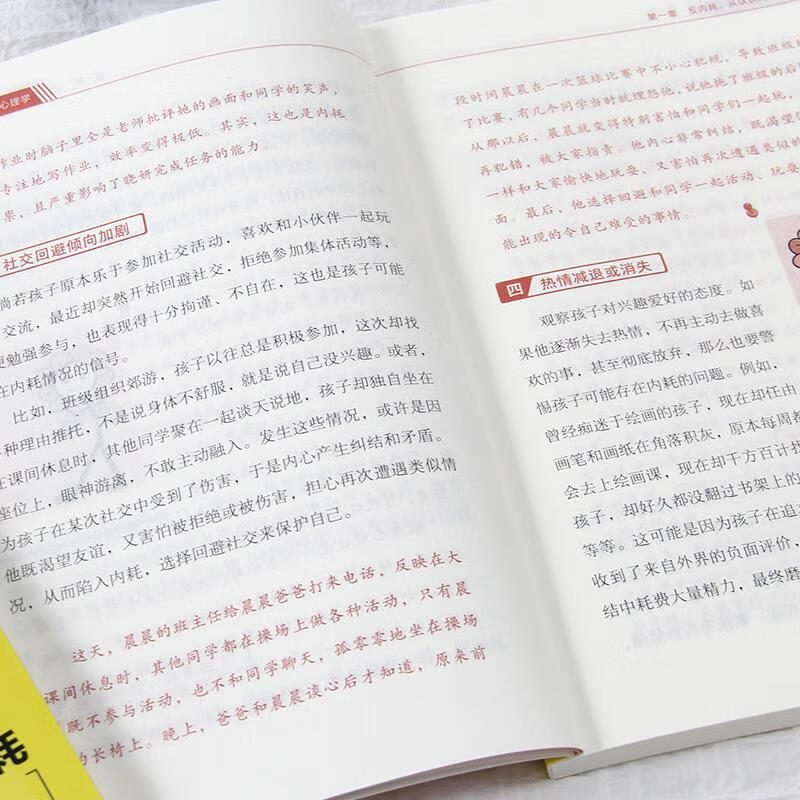 心理学
作业时脑子里全是老师批评她的画面和同学的笑声,
专注地写作业,效率变得极低。其实,这也是内耗
祟,且严重影响了晓妍完成任务的能力。
社交回避倾向加剧
倘若孩子原本乐于参加社交活动,喜欢和小伙伴一起玩
交流,最近却突然开始回避社交,拒绝参加集体活动等,
便勉强参与,也表现得十分拘谨、不自在,这也是孩子可能
在内耗情况的信号。
比如,班级组织郊游,孩子以往总是积极参加,这次却找
种理由推托,不是说身体不舒服,就是说自己没兴趣。或者,
在课间休息时,其他同学聚在一起谈天说地,孩子却独自坐在
座位上,眼神游离,不敢主动融入。发生这些情况,或许是因
为孩子在某次社交中受到了伤害,于是内心产生纠结和矛盾。
他既渴望友谊,又害怕被拒绝或被伤害,担心再次遭遇类似情
况,从而陷入内耗,选择回避社交来保护自己。
这天,晨晨的班主任给晨晨爸爸打来电话,反映在大
课间休息时,其他同学都在操场上做各种活动,只有晨
既不参与活动,也不和同学聊天,孤零零地坐在操场
的长椅上。晚上,爸爸和晨晨谈心后才知道,原来前
耗
第一章 反内耗,从认识
段时间晨晨在一次篮球比赛中不小心犯规,导致班级
了比赛,有几个同学当时就埋怨他,说他拖了班级的后
从那以后,晨晨就变得特别害怕和同学们一起玩,
再犯错,被大家指责。他内心非常纠结,既渴望像
一样和大家愉快地玩耍,又害怕再次遭遇类似的
面。最后,他选择回避和同学一起活动、玩耍
能出现的令自己难受的事情。
四 热情减退或消失
观察孩子对兴趣爱好的态度。如
果他逐渐失去热情,不再主动去做喜
欢的事,甚至彻底放弃,那么也要警
惕孩子可能存在内耗的问题。例如,
曾经痴迷于绘画的孩子,现在却任由
画笔和画纸在角落积灰,原本每周都
会去上绘画课,现在却千方百计找
孩子,却好久都没翻过书架上的
等等。这可能是因为孩子在追
收到了来自外界的负面评价,
结中耗费大量精力,最终磨